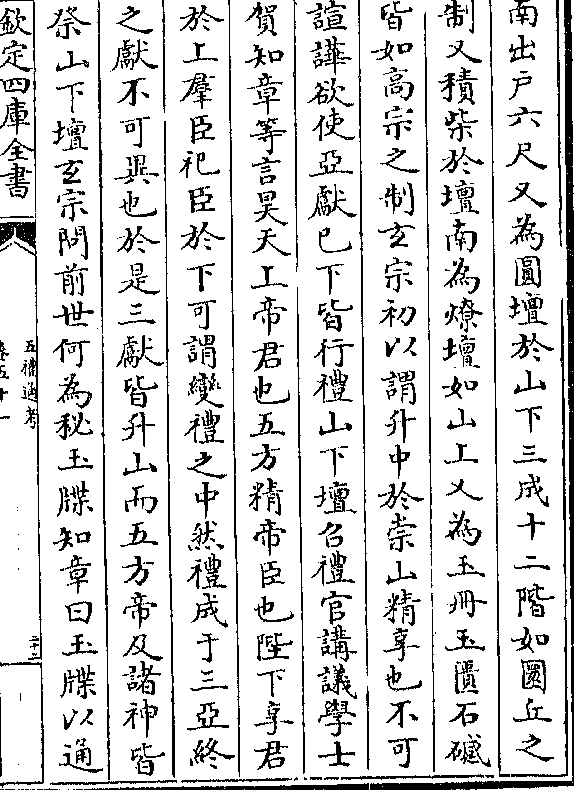 南出戸六尺又為圓壇於山下三成十二階如圜丘之
制又積柴於壇南為燎壇如山上又為玉冊玉匱石䃭
皆如高宗之制玄宗初以謂升中於崇山精享也不可
諠譁欲使亞獻已下皆行禮山下壇召禮官講議學士
賀知章等言昊天上帝君也五方精帝臣也陛下享君
於上羣臣祀臣於下可謂變禮之中然禮成于三亞終
之獻不可異也於是三獻皆升山而五方帝及諸神皆
祭山下壇玄宗問前世何為秘玉牒知章曰玉牒以通
欽定四庫全書
五禮通考
卷五十一